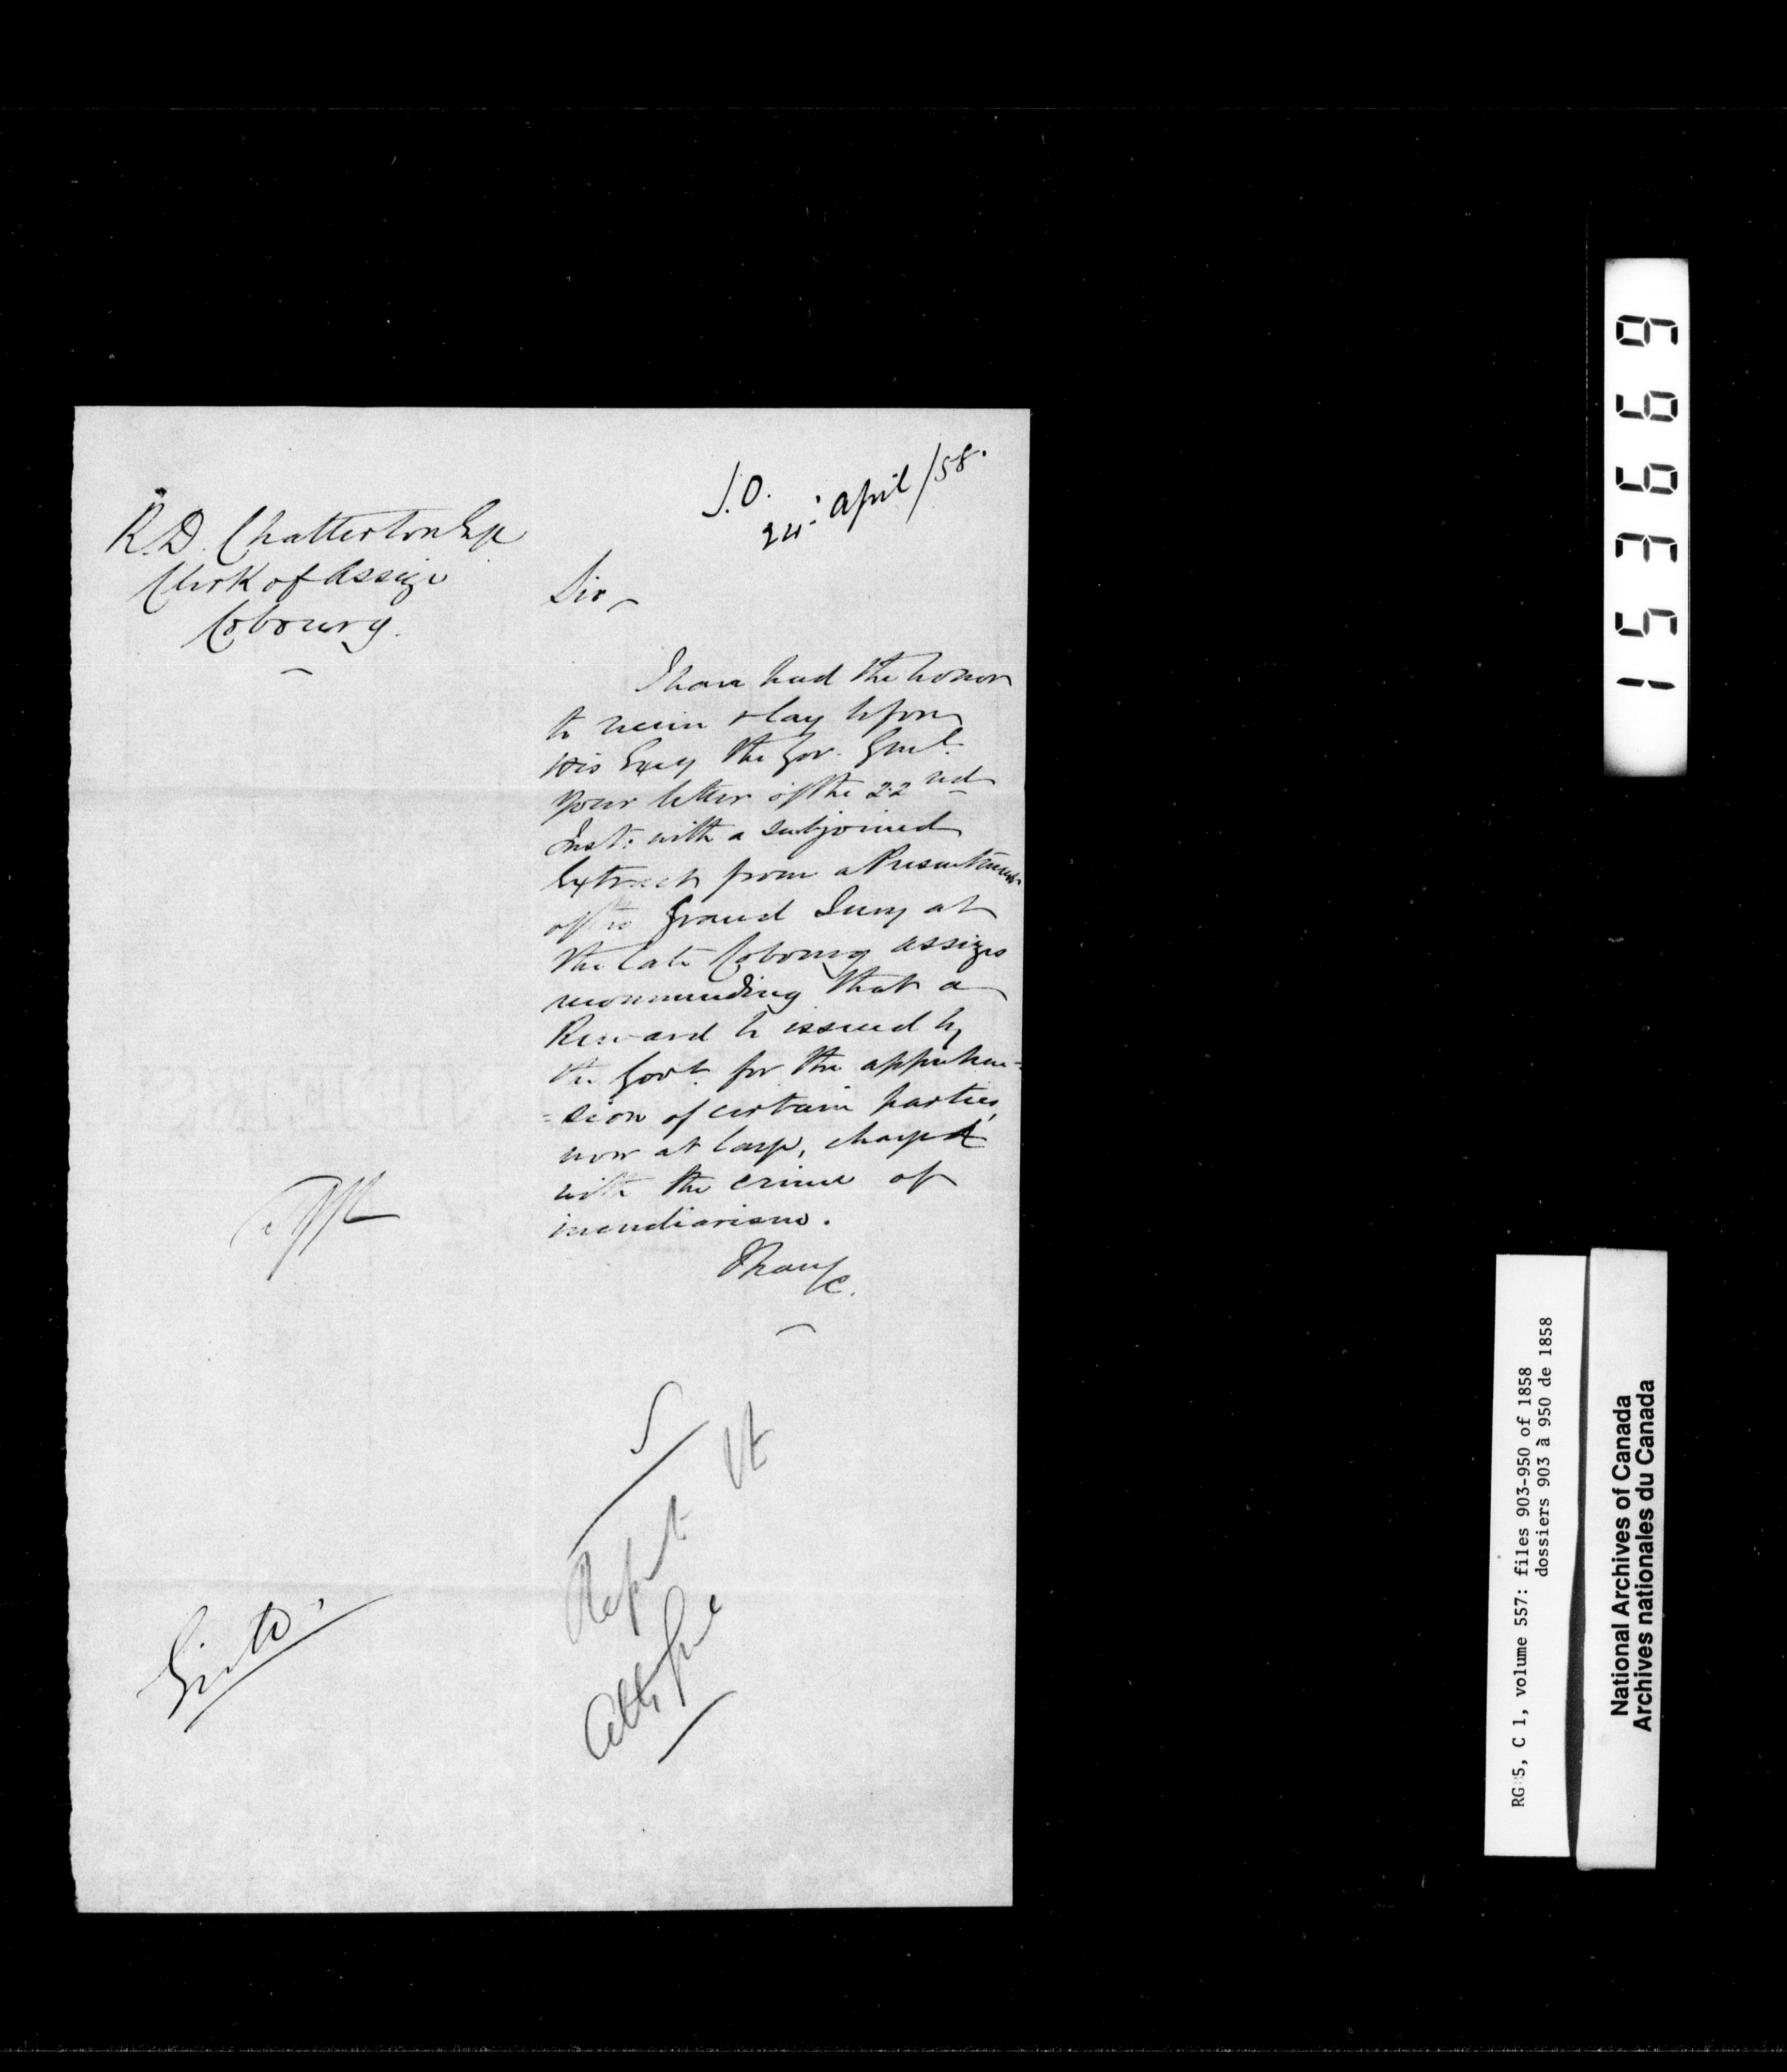 S.O.
24: April /58.
R.D. Chatterton Esq
Clerk of Assize
Cobourg.
Sir
I have had the honor
to receive & lay before
His Excy the Gov. Genl.
your letter of the 22nd
Inst: with a subjoined
Extract from a Presentment
of the Grand Jury at
the late Cobourg Assizes
recommending that a
Reward be issued by
the Govt. for the apprehen=
=sion of certain parties,
now at large, charged
with the crime of
incendiarism.
I have &c.
Report
Atty Genl
153669
RG 5, C 1, volume 557: files 903-950 of 1858
dossiers 903 à 950 de 1858
National Archives of Canada
Archives nationales du Canada